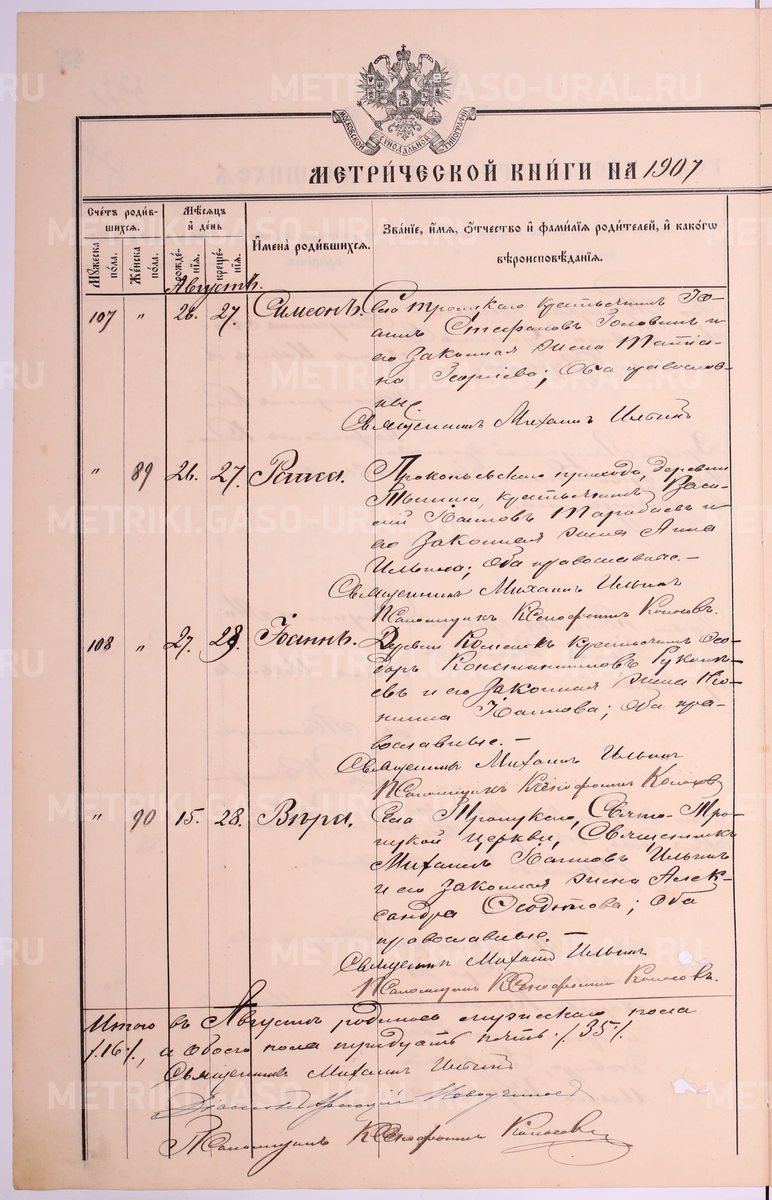 МОСКОВСКОЙ СѴНОДАЛЬНОЙ ТИПОГРАФІИ
МЕТРИ́ЧЕСКОЙ КНИ́ГИ НА 1907
Сче́тъ роди́вшихся.
Мꙋ́жеска по́ла.
Же́нска по́ла.
Мѣ́сяцъ и҆ де́нь
рожде́нїя.
креще́нїя.
И҆мена̀ роди́вшихся.
Зва́нїе, и҆́мя, ѻ҆́тчество и҆ фами́лїя роди́телей, и҆ како́гѡ
вѣроисповѣ́данїя.
Августъ.
107 " 26. 27. Симеонъ. Села Троицкаго крестьянинъ Іо-
аннъ Стефановъ Головинъ и
его законная жена Татіа-
на Георгіева; Оба православ-
ные
Священникъ Михаилъ Ильинъ
" 89 26. 27. Раиса. Прокопьевскаго прихода, деревни
крестьянинъ Васи-
лій Іоанновъ Тарабаевъ и
его законная жена Анна
Ильина; оба православные. —
Священникъ Михаилъ Ильинъ
Псаломщикъ Ксенофонтъ Колосовъ.
108 " 27. 28. Іоаннъ. Деревни крестьянинъ Ѳео-
доръ Константиновъ
и его законная жена
Іоаннова; оба пра-
вославные. —
Священникъ Михаилъ Ильинъ
Псаломщикъ Ксенофонтъ Колосовъ
" 90 15. 28. Вѣра. Села Троицкаго, Свято-Тро-
ицкой церкви, Священникъ
Михаилъ Іоанновъ Ильинъ
и его законная жена Алек-
сандра Ѳеодотова; оба
православные. —
Священникъ Михаилъ Ильинъ
Псаломщикъ Ксенофонтъ Колосовъ.
Итого въ Августѣ родилось мужескаго пола
/.16./, а обоего пола тридцать пять /.35./.
Священникъ Михаилъ Ильинъ
Псаломщикъ Ксенофонтъ Колосовъ
METRIKI.GASO-URAL.RU